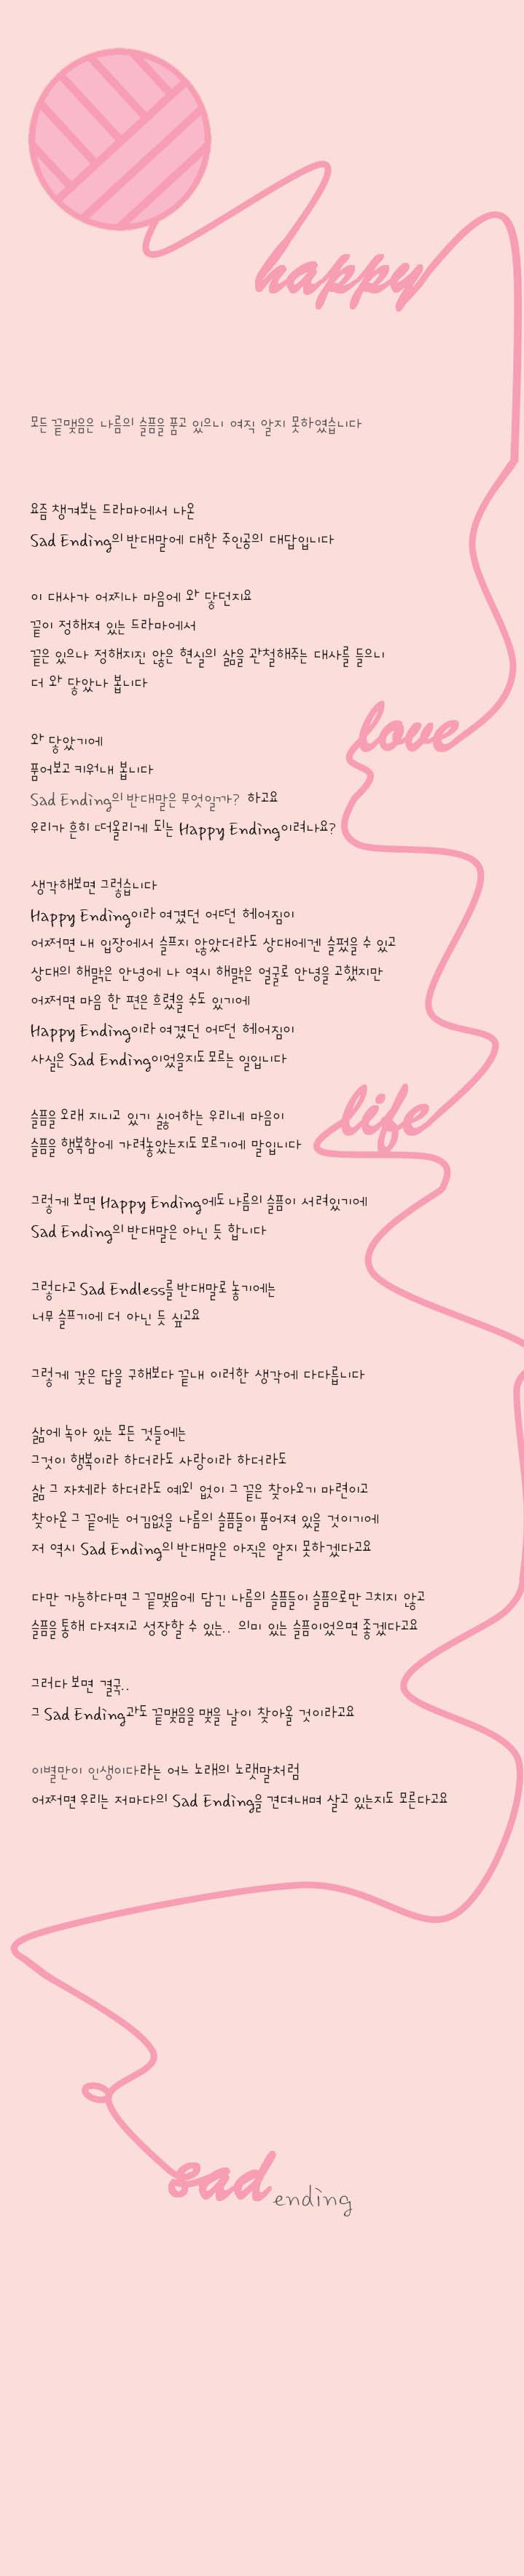 happy
모든 끝맺음은 나름의 슬픔을 품고 있으니 여직 알지 못하였습니다
요즘 챙겨보는 드라마에서 나온
Sad Ending의 반대말에 대한 주인공의 대답입니다
이 대사가 어찌나 마음에 와 닿던지요
끝이 정해져 있는 드라마에서
끝은 있으나 정해지진 않은 현실의 삶을 관철해주는 대사를 들으니
더 와 닿았나 봅니다
와 닿았기에
품어보고 키워내 봅니다
Sad Ending의 반대말은 무엇일까? 하고요
우리가 흔히 떠올리게 되는 Happy Ending이려나요?
love
생각해보면 그렇습니다
Happy Ending이라 여겼던 어떤 헤어짐이
어쩌면 내 입장에서 슬프지 않았더라도 상대에겐 슬펐을 수 있고
상대의 해맑은 안녕에 나 역시 해맑은 얼굴로 안녕을 고했지만
어쩌면 마음 한 편은 흐렸을 수도 있기에
Happy Ending이라 여겼던 어떤 헤어짐이
사실은 Sad Ending이었을지도 모르는 일입니다
슬픔을 오래 지니고 있기 싫어하는 우리네 마음이
슬픔을 행복함에 가려놓았는지도 모르기에 말입니다
life
그렇게 보면 Happy Ending에도 나름의 슬픔이 서려있기에
Sad Ending의 반대말은 아닌 듯 합니다
그렇다고 Sad Endless를 반대말로 놓기에는
너무 슬프기에 더 아닌 듯 싶고요
그렇게 갖은 답을 구해보다 끝내 이러한 생각에 다다릅니다
삶에 녹아 있는 모든 것들에는
그것이 행복이라 하더라도 사랑이라 하더라도
삶 그 자체라 하더라도 예외 없이 그 끝은 찾아오기 마련이고
찾아온 그 끝에는 어김없을 나름의 슬픔들이 품어져 있을 것이기에
저 역시 Sad Ending의 반대말은 아직은 알지 못하겠다고요
다만 가능하다면 그 끝맺음에 담긴 나름의 슬픔들이 슬픔으로만 그치지 않고
슬픔을 통해 다져지고 성장할 수 있는.. 의미 있는 슬픔이었으면 좋겠다고요
그러다 보면 결국..
그 Sad Ending과도 끝맺음을 맺을 날이 찾아올 것이라고요
이별만이 인생이다라는 어느 노래의 노랫말처럼
어쩌면 우리는 저마다의 Sad Ending을 견뎌내며 살고 있는지도 모른다고요
sad ending